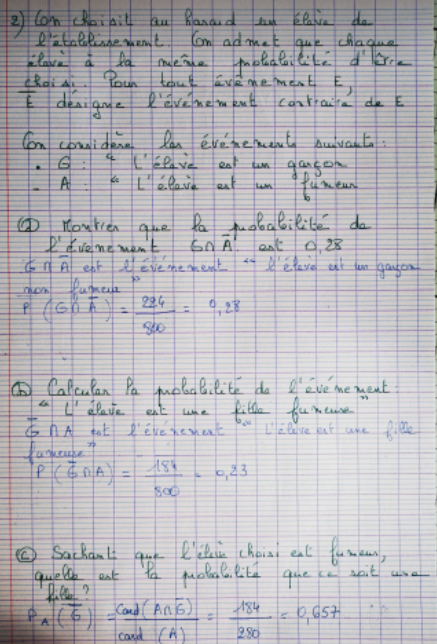 2) On choisit au hasard un élève de
l'établissement. On admet que chaque
élève à la même probabilité d'être
choisi. Pour tout événement E,
E̅ désigne l'événement contraire de E
On considère les événements suivants :
• G : " L'élève est un garçon
- A : " L'élève est un fumeur
ⓐ Montrer que la probabilité de
l'évenement G∩A̅ est 0,28
G∩A̅ est l'événement " l'élève est un garçon
non fumeur "
P (G∩A̅) = 224/800 = 0,28
ⓑ Calculer la probabilité de l'événement :
" L'élève est une fille fumeuse "
G̅∩A est l'événement " L'élève est une fille
fumeuse "
P (G̅∩A) = 184/800 = 0,23
ⓒ Sachant que l'élève choisi est fumeur,
quelle est la probabilité que ce soit une
fille ?
P_A (G̅) = Card(A∩G̅)/card (A) = 184/280 = 0,657